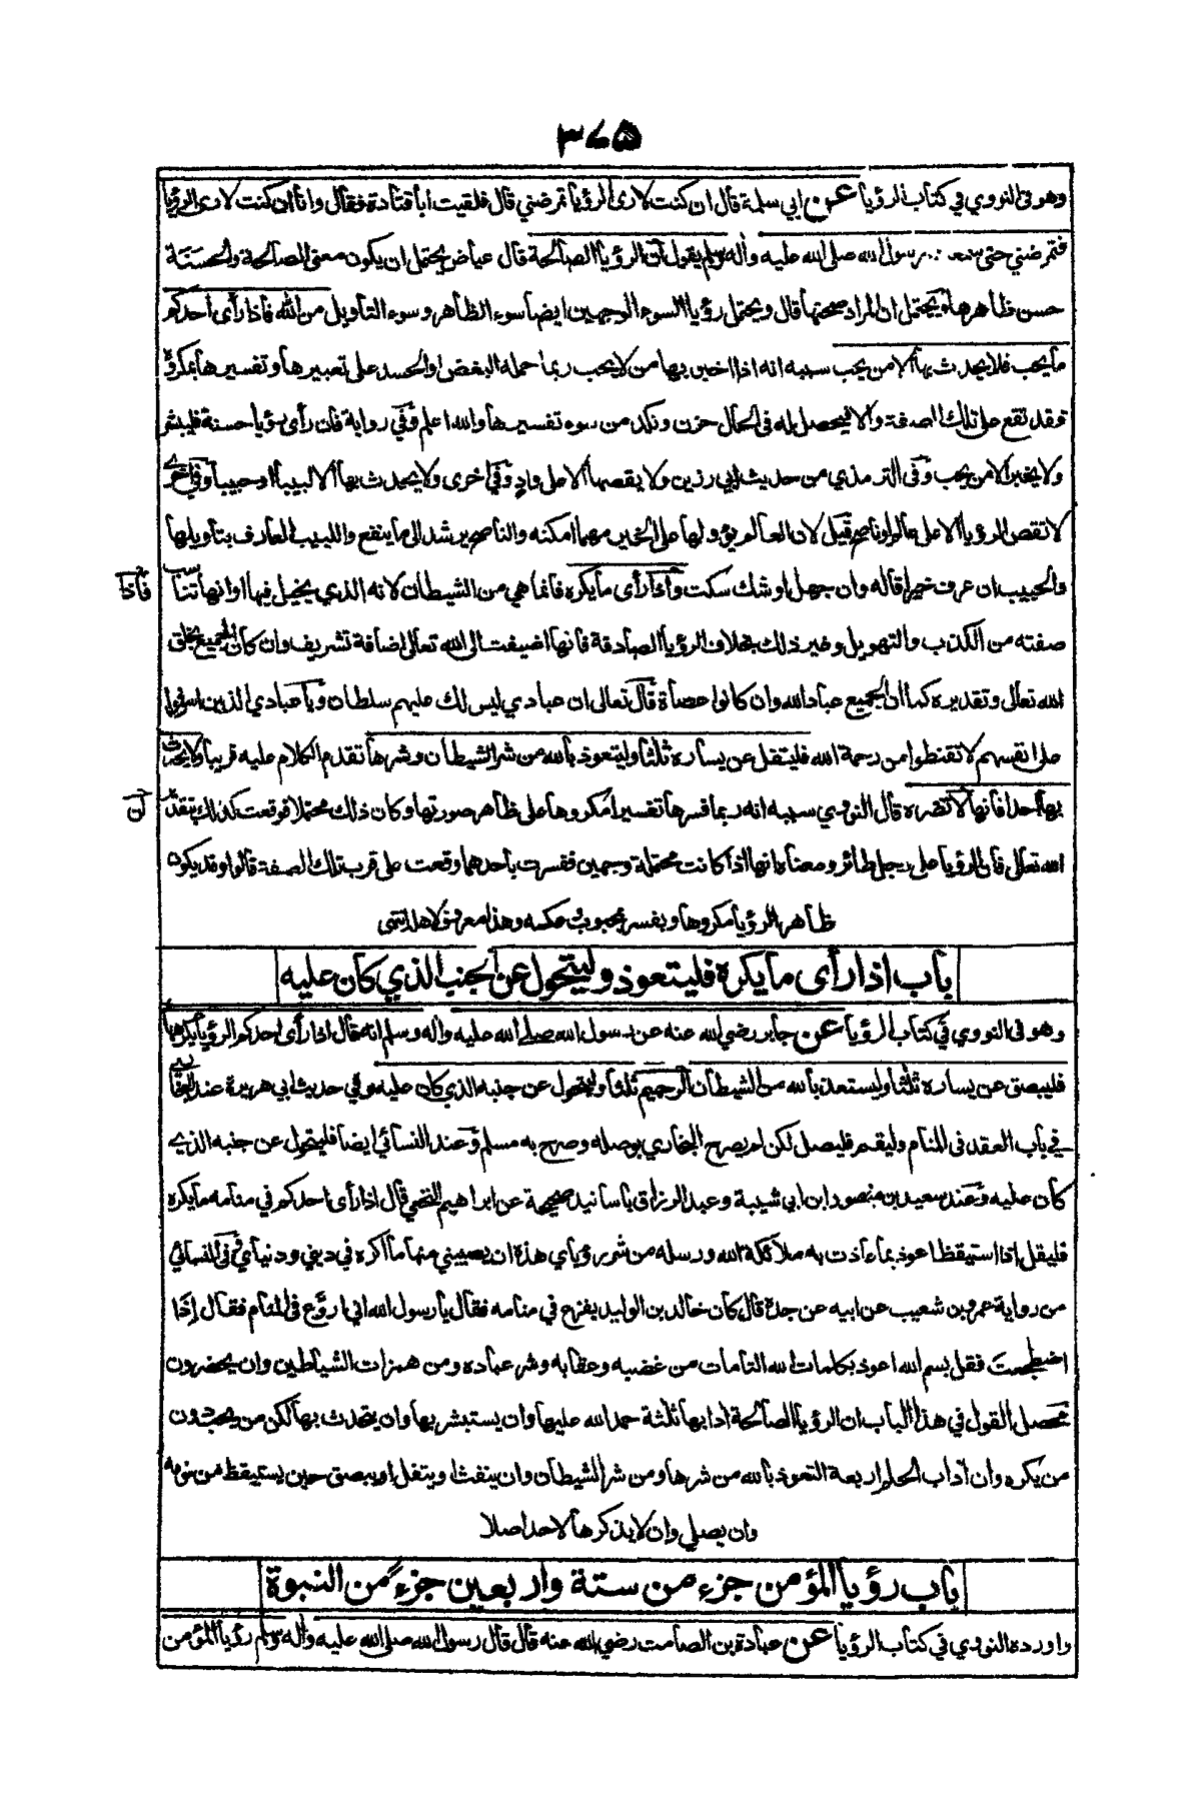 ٣٧٥
وهو في النووي في كتاب الرؤيا عن ابي سلمة قال ان كنت لارى الرؤيا تمرضني قال فلقيت أبا قتادة فقال وانا ان كنت لارى الرؤيا
فتمرضني حتى سمعت رسول الله صلى الله عليه واله وسلم يقول ان الرؤيا الصالحة قال عياض يحتمل ان يكون معنى الصالحة والحسنة
حسن ظاهرها ويحتمل ان المراد صحتها قال ويحتمل رؤيا السوء الوجهين ايضا سوء الظاهر وسوء التأويل من الله فاذا رأى أحدكم
ما يحب فلا يحدث بها الا من يحب سببه انه اذا اخبر بها من لا يحب ربما حمله البغض او الحسد على تعبيرها وتفسيرها بمكروه
فقد تقع على تلك الصفة والا فيحصل له في الحال حزن ونكد من سوء تفسيرها والله اعلم وفي رواية فان رأى رؤيا حسنة فليبشر
ولا يخبر الا من يحب وفي الترمذي من حديث ابي رزين ولا يقصها الا على واد وفي اخرى ولا يحدث بها الا لبيبا او حبيبا وفي اخرى
لا تقص الرؤيا الا على عالم او ناصح قيل لان العالم يؤولها على الخير مهما امكنه والناصح يرشد الى ما ينفع واللبيب العارف بتأويلها
والحبيب ان عرف خيرا قاله وان جهل او شك سكت واذا رأى ما يكره فانما هي من الشيطان لانه الذي يخيل فيها او انها تناسب
فاذا
صفته من الكذب والتهويل وغير ذلك بخلاف الرؤيا الصادقة فانها اضيفت الى الله تعالى اضافة تشريف وان كان الجميع بخلق
الله تعالى وتقديره كما ان الجميع عباد الله وان كانوا عصاة قال تعالى ان عبادي ليس لك عليهم سلطان ويا عبادي الذين اسرفوا
على انفسهم لا تقنطوا من رحمة الله فليتفل عن يساره ثلثا وليتعوذ بالله من شر الشيطان وشرها تقدم الكلام عليه قريبا ولا يحدث
بها أحدا فانها لا تضره قال النووي سببه انه ربما فسرها تفسيرا مكروها على ظاهر صورتها وكان ذلك محتملا فوقعت كذلك بتقدير
الله تعالى فان الرؤيا على رجل طائر ومعناه انها اذا كانت محتملة وجهين ففسرت باحدهما وقعت على قرب تلك الصفة قالوا وقد يكون
ظاهر الرؤيا مكروها ويفسر بمحبوب وعكسه وهذا معروف لاهله انتهى
باب اذا رأى ما يكره فليتعوذ وليتحول عن الجنب الذي كان عليه
وهو في النووي في كتاب الرؤيا عن جابر رضي الله عنه عن رسول الله صلى الله عليه واله وسلم انه قال اذا رأى احدكم الرؤيا يكرهها
فليبصق عن يساره ثلثا وليستعذ بالله من الشيطان الرجيم ثلثا وليتحول عن جنبه الذي كان عليه وفي حديث ابي هريرة عند البخاري
في باب العقد في المنام وليقم فليصل لكن لم يصرح البخاري بوصله وصرح به مسلم وعند النسائي ايضا فليتحول عن جنبه الذي
كان عليه وعند سعيد بن منصور وابن ابي شيبة وعبد الرزاق باسانيد صحيحة عن ابراهيم النخعي قال اذا رأى احدكم في منامه ما يكره
فليقل اذا استيقظ اعوذ بما عاذت به ملائكة الله ورسله من شر رؤياي هذه ان يصيبني منها ما اكره في ديني ودنياي وفي النسائي
من رواية عمرو بن شعيب عن ابيه عن جده قال كان خالد بن الوليد يفزع في منامه فقال يا رسول الله اني اروع في المنام فقال إذا
اضطجعت فقل بسم الله اعوذ بكلمات الله التامات من غضبه وعقابه وشر عباده ومن همزات الشياطين وان يحضرون
محصل القول في هذا الباب ان الرؤيا الصالحة ادابها ثلثة حمد الله عليها وان يستبشر بها وان يتحدث بها لكن من يحب دون
من يكره وان آداب الحلم اربعة التعوذ بالله من شرها ومن شر الشيطان وان ينفث او يتفل او يبصق حين يستيقظ من نومه
وان يصلي وان لا يذكرها لاحد اصلا
باب رؤيا المؤمن جزء من ستة واربعين جزءً من النبوة
واورده النووي في كتاب الرؤيا عن عبادة بن الصامت رضي الله عنه قال قال رسول الله صلى الله عليه واله وسلم رؤيا المؤمن